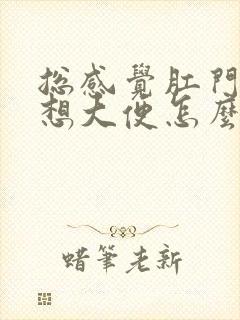 总感覺肛門
想大便怎麼
蜡筆老新